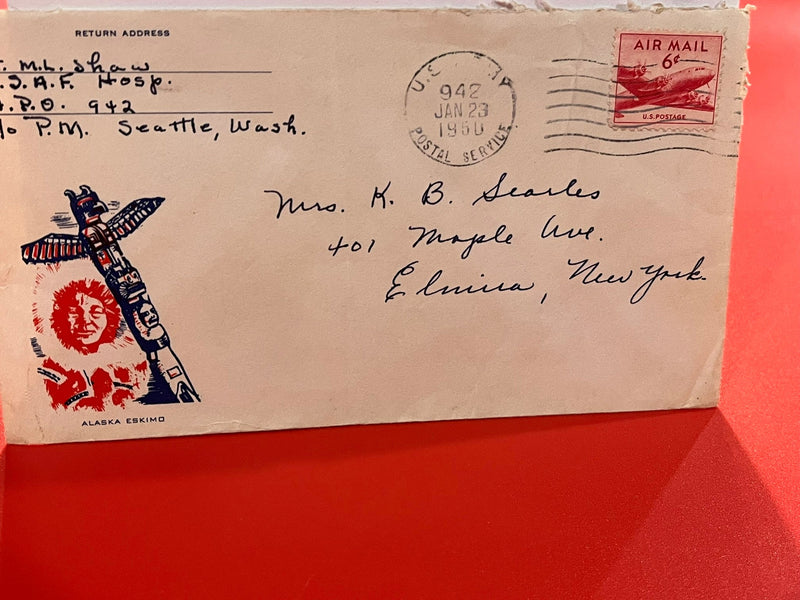 RETURN ADDRESS
M.L. Shaw
S.A.F. Hosp.
P.O. 942
P.M. Seattle, Wash.
U.S.
942
JAN 23
1950
POSTAL SERVICE
AIR MAIL
6¢
U.S. POSTAGE
Mrs. K. B. Searles
401 Maple Ave.
Elmira, New York.
ALASKA ESKIMO